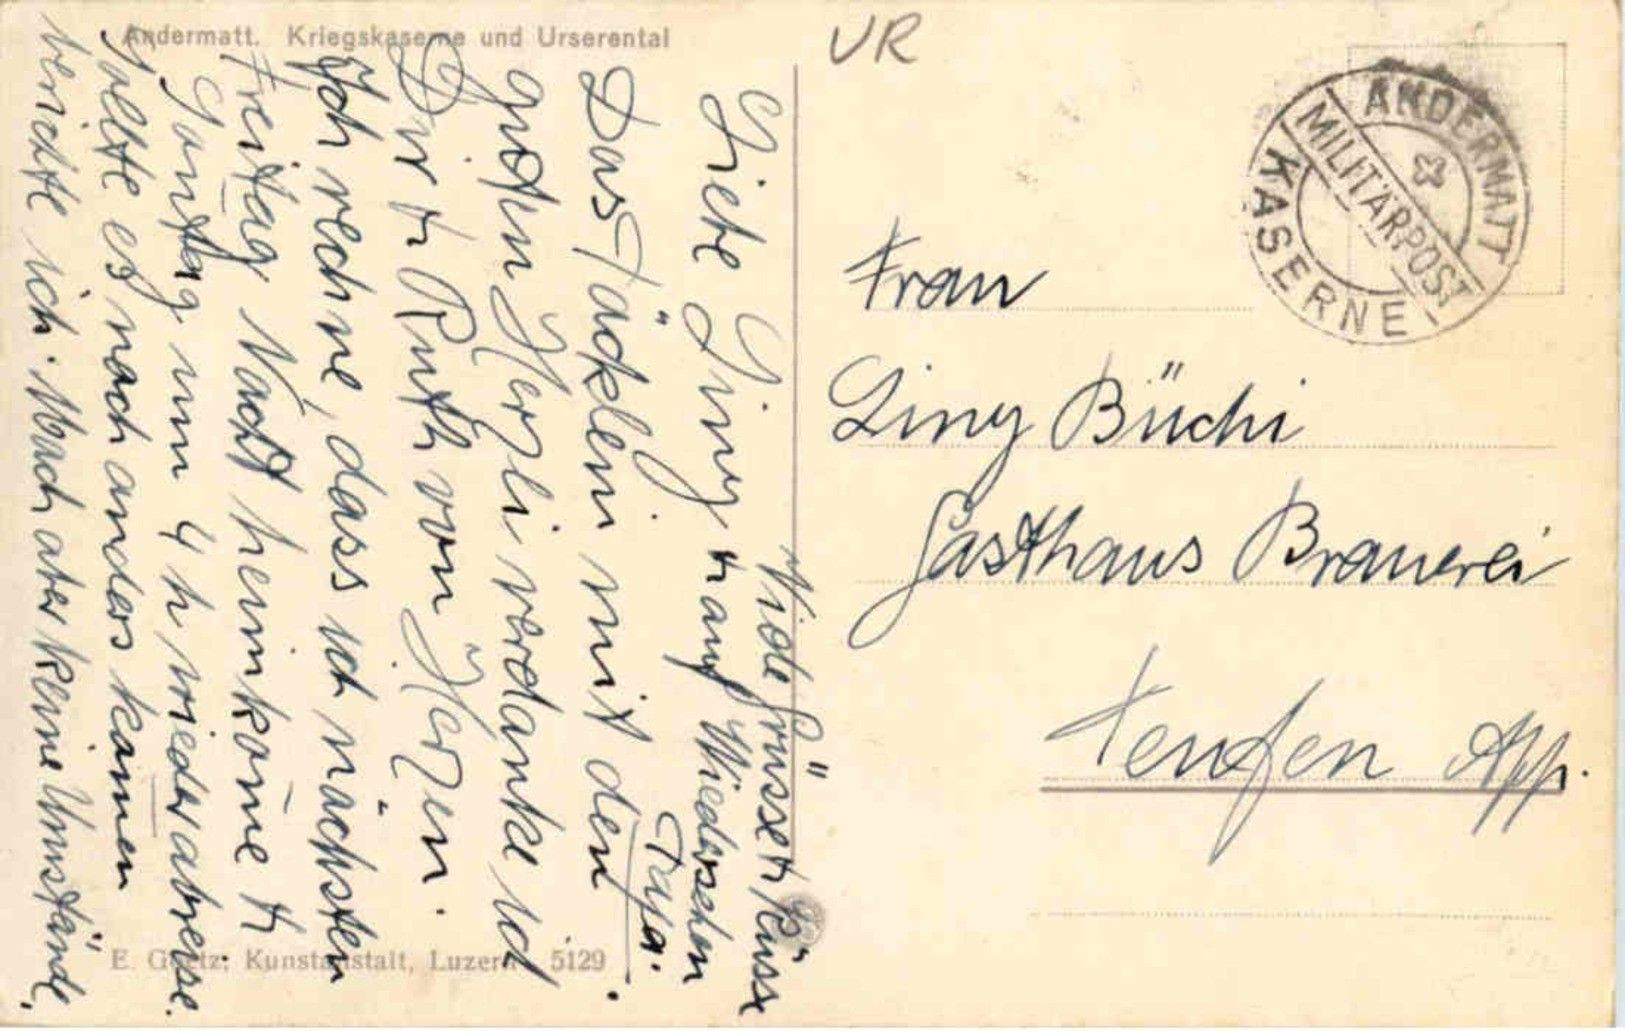 Andermatt. Kriegskaserne und Urserental
VR
ANDERMATT
MILITÄRPOST
KASERNE
Liebe Liny
Das Päcklein mit den
guten Herzli verdanke ich
Dir & Ruth von Herzen.
Ich rechne, dass ich nächsten
Freitag Nacht heimkome &
Sontag um 4 h wieder abreise.
Sollte es noch anders komen
berichte ich. Mach aber keine Umstände,
Viele Grüsse & Küsse
& auf Wiedersehen
Frau
Liny Büchi
Gasthaus Brauerei
Teufen App.
E. Goetz, Kunstanstalt, Luzern 5129